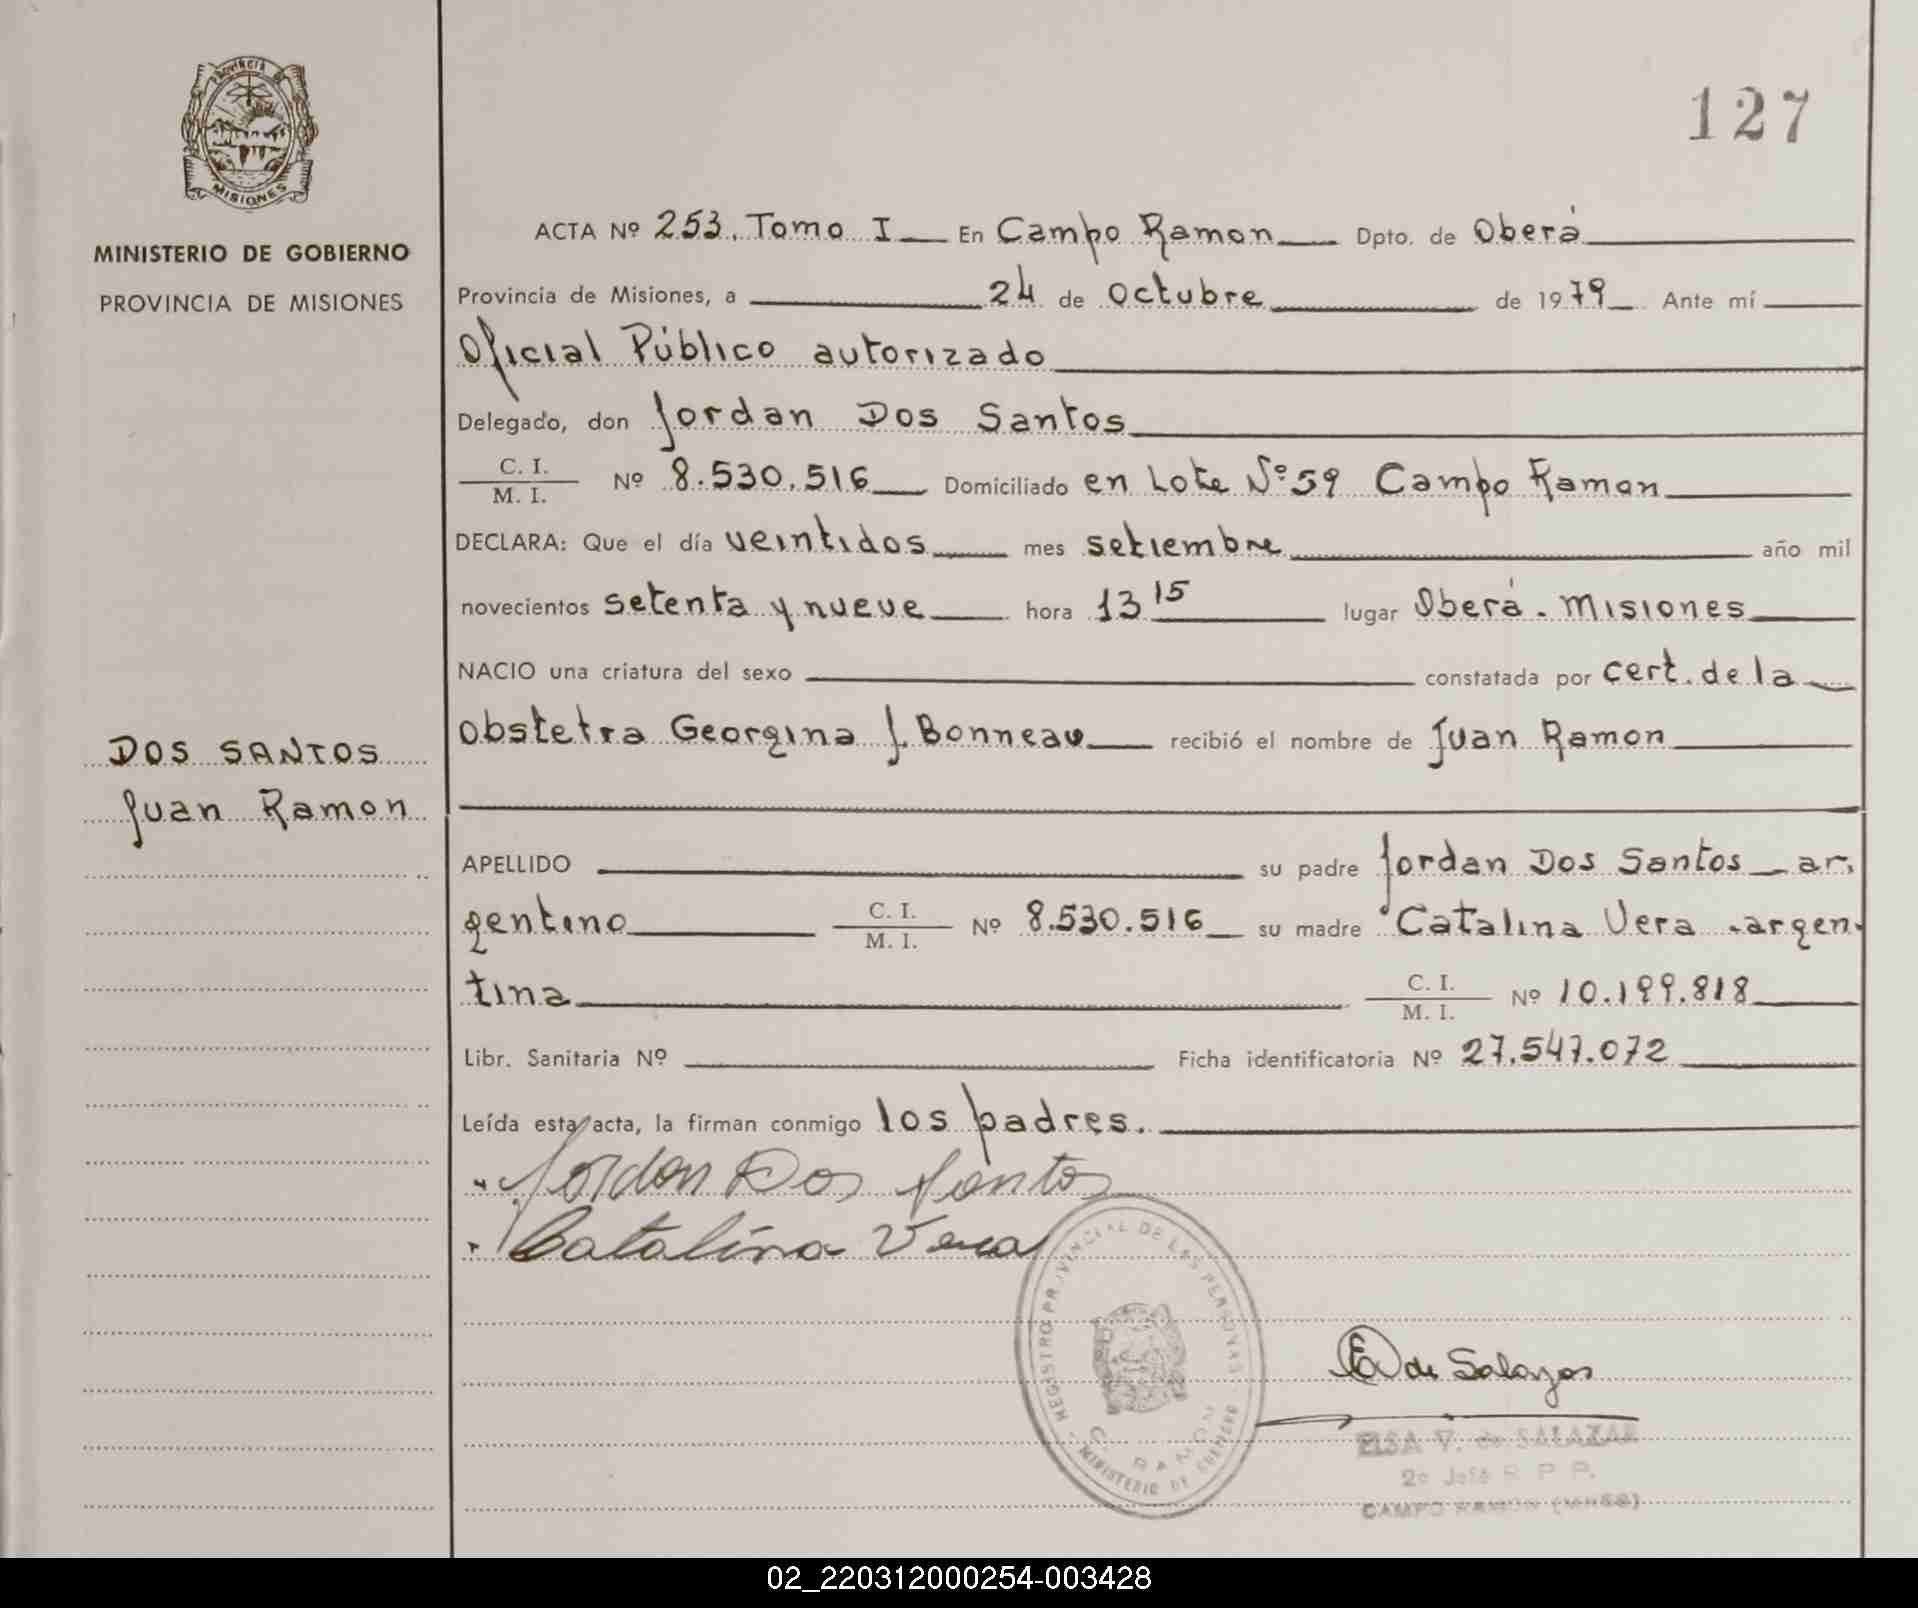 127
PROVINCIA DE
MISIONES
MINISTERIO DE GOBIERNO
PROVINCIA DE MISIONES
DOS SANTOS
Juan Ramon
ACTA Nº 253. Tomo I En Campo Ramon Dpto. de Oberá
Provincia de Misiones, a 24 de Octubre de 1979 Ante mí
Oficial Público autorizado
Delegado, don Jordan Dos Santos
C. I.
M. I. Nº 8.530.516 Domiciliado en Lote Nº 59 Campo Ramon
DECLARA: Que el día veintidos mes setiembre año mil
novecientos setenta y nueve hora 13 15 lugar Oberá - Misiones
NACIO una criatura del sexo constatada por cert. de la
obstetra Georgina J. Bonneau recibió el nombre de Juan Ramon
APELLIDO su padre Jordan Dos Santos ar,
gentino C. I.
M. I. Nº 8.530.516 su madre Catalina Vera - argen-
tina C. I.
M. I. Nº 10.199.818
Libr. Sanitaria Nº Ficha identificatoria Nº 27.547.072
Leída esta acta, la firman conmigo los padres.
Jordan Dos Santos
Catalina Vera
REGISTRO PROVINCIAL DE LAS PERSONAS
C. RAMON
MINISTERIO DE GOBIERNO
E de Salazar
ELSA V. de SALAZAR
2º Jefe R P P.
CAMPO RAMON (MNES)
02_220312000254-003428